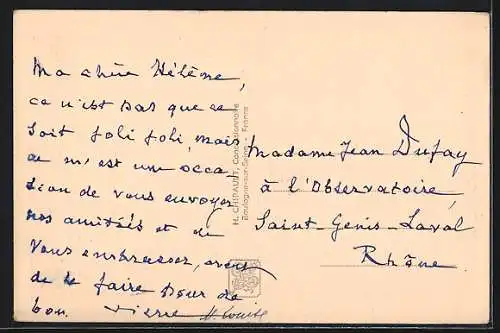 Ma chère Hélène,
ce n'est pas que ce
soit joli joli, mais
ce m'est une occa-
sion de vous envoyer
nos amitiés et de
vous embrasser, avant
de le faire pour de
bon. Pierre M. Louise
H. CHIPAULT, Concessionnaire
Boulogne-sur-Seine - France
Madame Jean Dufay
à l'Observatoire
Saint-Genis-Laval
Rhône